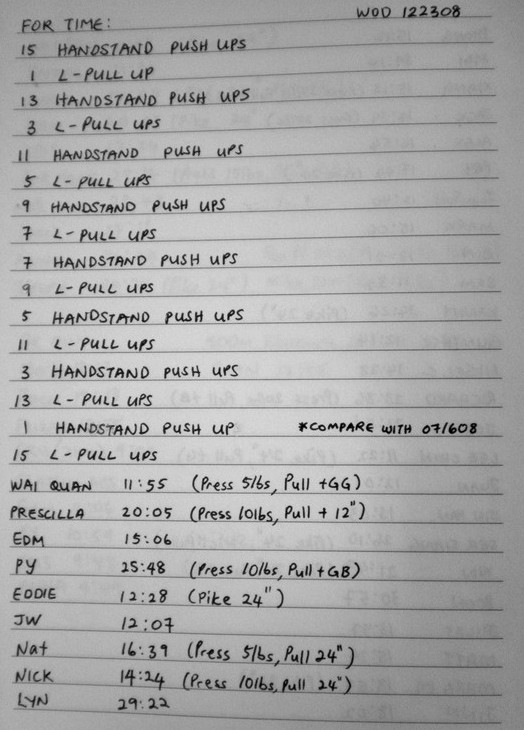 WOD 122308
FOR TIME:
15 HANDSTAND PUSH UPS
1 L-PULL UP
13 HANDSTAND PUSH UPS
3 L-PULL UPS
11 HANDSTAND PUSH UPS
5 L-PULL UPS
9 HANDSTAND PUSH UPS
7 L-PULL UPS
7 HANDSTAND PUSH UPS
9 L-PULL UPS
5 HANDSTAND PUSH UPS
11 L-PULL UPS
3 HANDSTAND PUSH UPS
13 L-PULL UPS
1 HANDSTAND PUSH UP *COMPARE WITH 071608
15 L-PULL UPS
WAI QUAN 11:55 (Press 5lbs, Pull +GG)
PRESCILLA 20:05 (Press 10lbs, Pull + 12")
EDM 15:06
PY 25:48 (Press 10lbs, Pull + GB)
EDDIE 12:28 (Pike 24")
JW 12:07
Nat 16:39 (Press 5lbs, Pull 24")
NICK 14:24 (Press 10lbs, Pull 24")
LYN 29:22